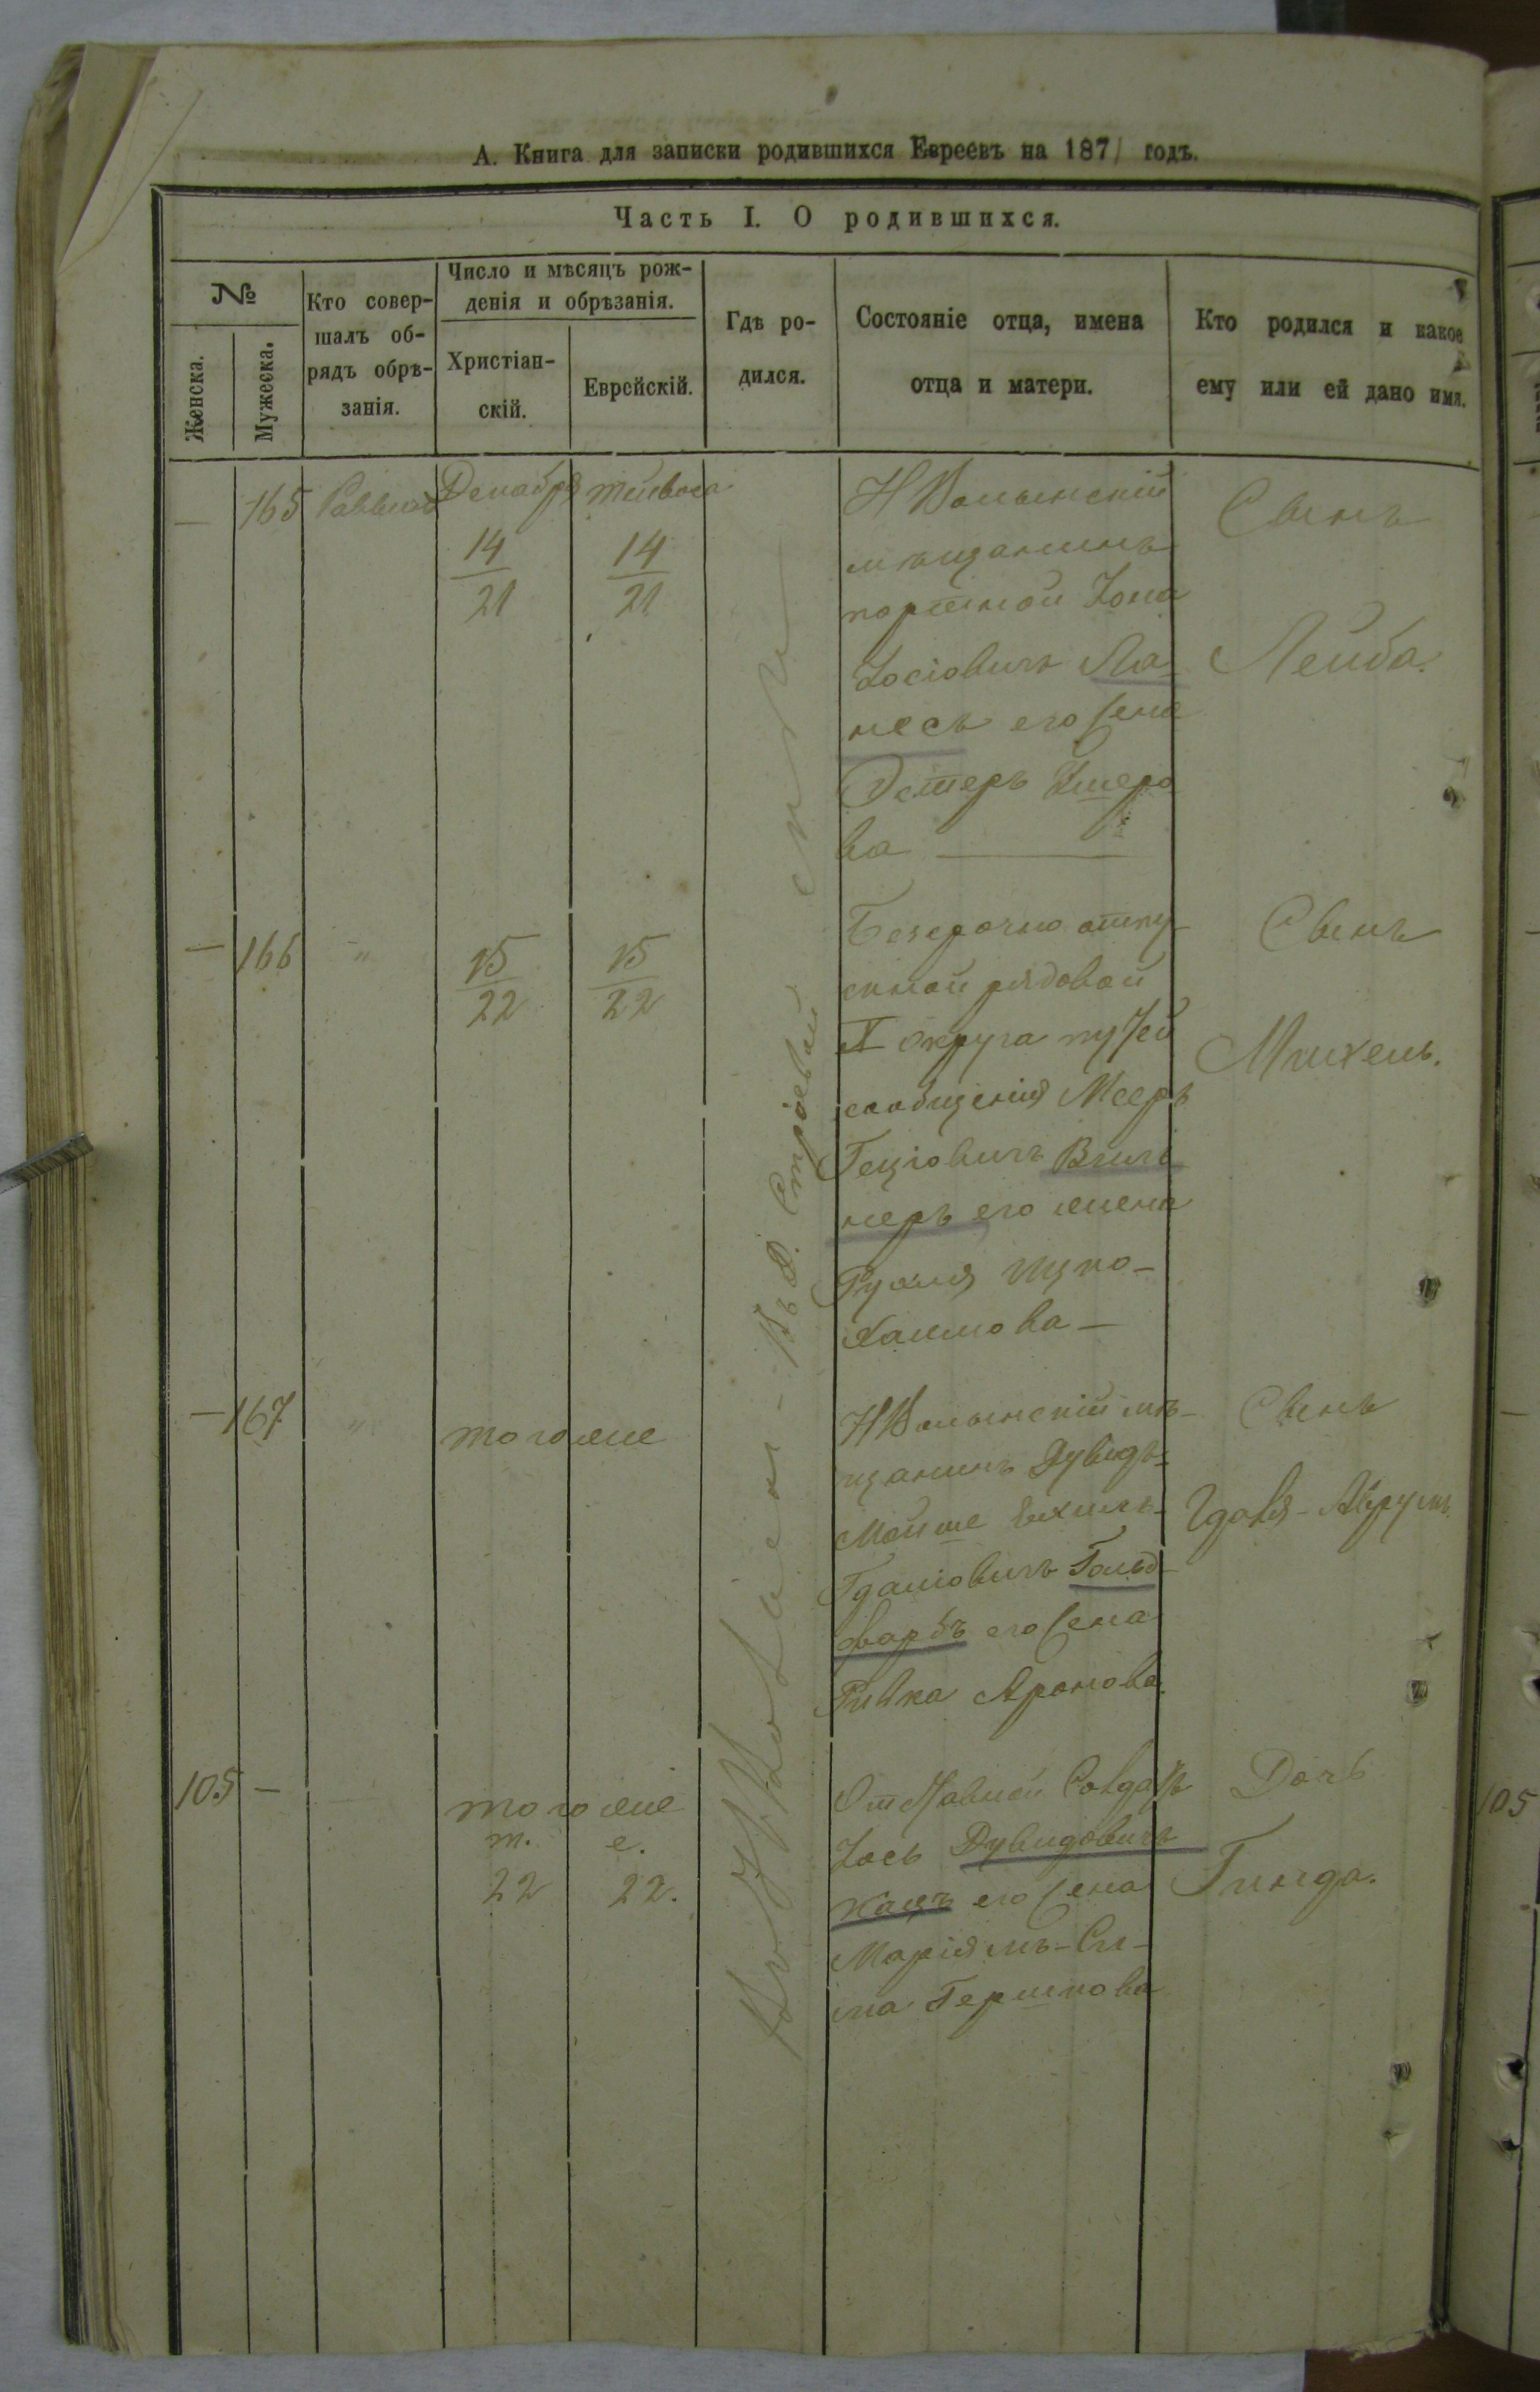 А. Книга для записки родившихся Евреевъ на 1871 годъ.
Часть I. О родившихся.
№
Женска.
Мужеска.
Кто совер-
шалъ об-
рядъ обрѣ-
занія.
Число и мѣсяцъ рож-
денія и обрѣзанія.
Христіан-
скій.
Еврейскій.
Гдѣ ро-
дился.
Состояніе отца, имена
отца и матери.
Кто родился и какое
ему или ей дано имя.
— 165 Раввинъ Декабря тейвеса
14 14
21 21
НВолынскій
мѣщанинъ
портной Іона
Іосіовичъ Ла-
несъ его жена
Эстеръ
ва —
Сынъ
Лейба.
— 166 "
15 15
22 22
Безсрочно отпу-
скной рядовой
округа путей
сообщенія Мееръ
Гецiовичъ
неръ его жена
Рухля Ицко-
Хаимова —
Сынъ
Михель.
— 167 " того же
НВолынскій мѣ-
щанинъ Дувидъ-
Мойше Ехилъ-
Гдаліовичъ Гольд-
фарбъ его жена
Ривка Аронова.
Сынъ
Гдаля-Аврумъ.
105 — того же
т. е.
22 22.
Отставной Солдатъ
Іось Дувидовичъ
Кацъ его жена
Маріямъ-Си-
ма Гершкова
Дочь
Гинда.
105